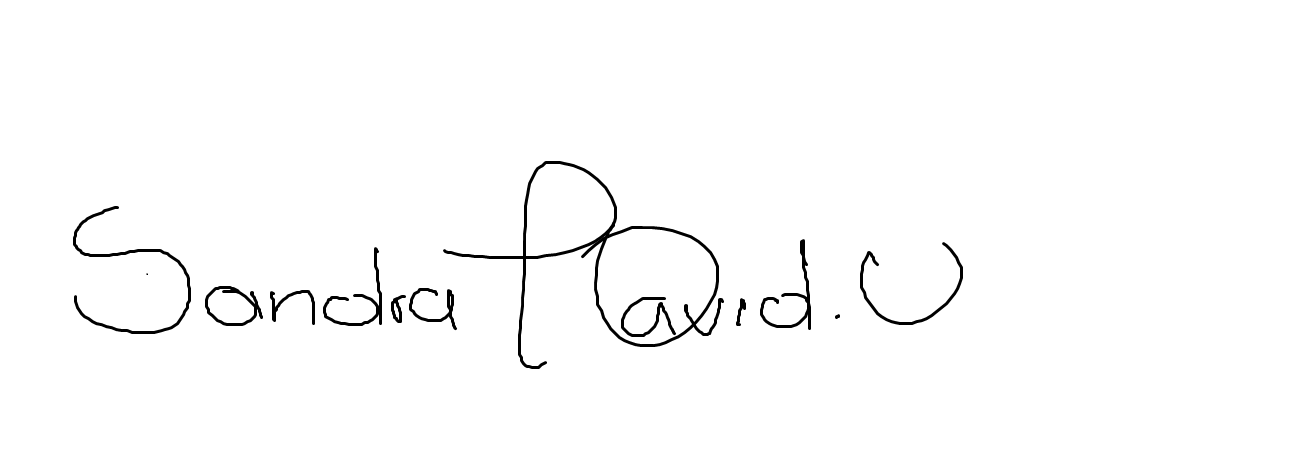 Sandra P David. U